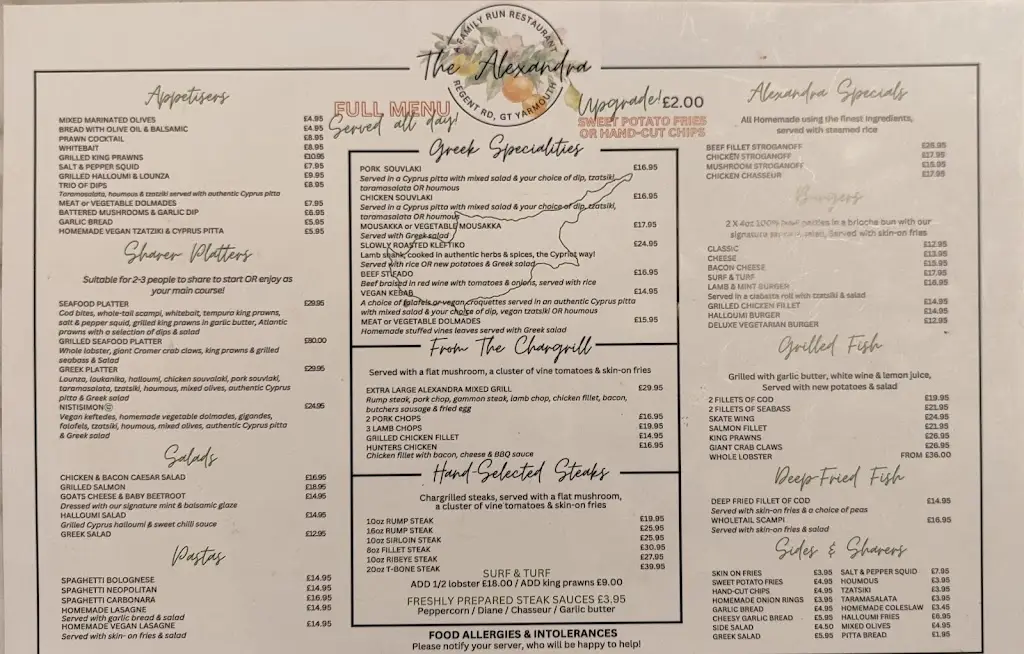 A FAMILY RUN RESTAURANT
The Alexandra
REGENT RD, GT YARMOUTH
FULL MENU
Served all day!
Upgrade! £2.00
SWEET POTATO FRIES
OR HAND-CUT CHIPS
Appetisers
MIXED MARINATED OLIVES £4.95
BREAD WITH OLIVE OIL & BALSAMIC £4.95
PRAWN COCKTAIL £8.95
WHITEBAIT £8.95
GRILLED KING PRAWNS £10.95
SALT & PEPPER SQUID £7.95
GRILLED HALLOUMI & LOUNZA £9.95
TRIO OF DIPS £8.95
Taramasalata, houmous & tzatziki served with authentic Cyprus pitta
MEAT or VEGETABLE DOLMADES £7.95
BATTERED MUSHROOMS & GARLIC DIP £6.95
GARLIC BREAD £5.95
HOMEMADE VEGAN TZATZIKI & CYPRUS PITTA £5.95
Sharer Platters
Suitable for 2-3 people to share to start OR enjoy as
your main course!
SEAFOOD PLATTER £29.95
Cod bites, whole-tail scampi, whitebait, tempura king prawns,
salt & pepper squid, grilled king prawns in garlic butter, Atlantic
prawns with a selection of dips & salad
GRILLED SEAFOOD PLATTER £80.00
Whole lobster, giant Cromer crab claws, king prawns & grilled
seabass & Salad
GREEK PLATTER £29.95
Lounza, loukanika, halloumi, chicken souvalaki, pork souvlaki,
taramasalata, tzatsiki, houmous, mixed olives, authentic Cyprus
pitta & Greek salad
NISTISIMON £24.95
Vegan keftedes, homemade vegetable dolmades, gigandes,
falafels, tzatsiki, houmous, mixed olives, authentic Cyprus pitta
& Greek salad
Salads
CHICKEN & BACON CAESAR SALAD £16.95
GRILLED SALMON £18.95
GOATS CHEESE & BABY BEETROOT £14.95
Dressed with our signature mint & balsamic glaze
HALLOUMI SALAD £14.95
Grilled Cyprus halloumi & sweet chilli sauce
GREEK SALAD £12.95
Pastas
SPAGHETTI BOLOGNESE £14.95
SPAGHETTI NEOPOLITAN £14.95
SPAGHETTI CARBONARA £16.95
HOMEMADE LASAGNE £14.95
Served with garlic bread & salad
HOMEMADE VEGAN LASAGNE £14.95
Served with skin- on fries & salad
Greek Specialities
PORK SOUVLAKI £16.95
Served in a Cyprus pitta with mixed salad & your choice of dip, tzatsiki,
taramasalata OR houmous
CHICKEN SOUVLAKI £16.95
Served in a Cyprus pitta with mixed salad & your choice of dip, tzatsiki,
taramasalata OR houmous
MOUSAKKA or VEGETABLE MOUSAKKA £17.95
Served with Greek salad
SLOWLY ROASTED KLEFTIKO £24.95
Lamb shank, cooked in authentic herbs & spices, the Cypriot way!
Served with rice OR new potatoes & Greek salad
BEEF STIFADO £16.95
Beef braised in red wine with tomatoes & onions, served with rice
VEGAN KEBAB £14.95
A choice of falafels or vegan croquettes served in an authentic Cyprus pitta
with mixed salad & your choice of dip, vegan tzatsiki OR houmous
MEAT or VEGETABLE DOLMADES £15.95
Homemade stuffed vines leaves served with Greek salad
From The Chargrill
Served with a flat mushroom, a cluster of vine tomatoes & skin-on fries
EXTRA LARGE ALEXANDRA MIXED GRILL £29.95
Rump steak, pork chop, gammon steak, lamb chop, chicken fillet, bacon,
butchers sausage & fried egg
2 PORK CHOPS £16.95
3 LAMB CHOPS £19.95
GRILLED CHICKEN FILLET £14.95
HUNTERS CHICKEN £16.95
Chicken fillet with bacon, cheese & BBQ sauce
Hand-Selected Steaks
Chargrilled steaks, served with a flat mushroom,
a cluster of vine tomatoes & skin-on fries
10oz RUMP STEAK £19.95
16oz RUMP STEAK £25.95
10oz SIRLOIN STEAK £25.95
8oz FILLET STEAK £30.95
10oz RIBEYE STEAK £27.95
20oz T-BONE STEAK £39.95
SURF & TURF
ADD 1/2 lobster £18.00 / ADD king prawns £9.00
FRESHLY PREPARED STEAK SAUCES £3.95
Peppercorn / Diane / Chasseur / Garlic butter
FOOD ALLERGIES & INTOLERANCES
Please notify your server, who will be happy to help!
Alexandra Specials
All Homemade using the finest ingredients,
served with steamed rice
BEEF FILLET STROGANOFF £25.95
CHICKEN STROGANOFF £17.95
MUSHROOM STROGANOFF £15.95
CHICKEN CHASSEUR £17.95
Burgers
2 X 4oz 100% beef patties in a brioche bun with our
signature salad, Served with skin-on fries
CLASSIC £12.95
CHEESE £13.95
BACON CHEESE £15.95
SURF & TURF £17.95
LAMB & MINT BURGER £16.95
Served in a ciabatta roll with tzatsiki & salad
GRILLED CHICKEN FILLET £14.95
HALLOUMI BURGER £14.95
DELUXE VEGETARIAN BURGER £12.95
Grilled Fish
Grilled with garlic butter, white wine & lemon juice,
Served with new potatoes & salad
2 FILLETS OF COD £19.95
2 FILLETS OF SEABASS £21.95
SKATE WING £24.95
SALMON FILLET £21.95
KING PRAWNS £26.95
GIANT CRAB CLAWS £26.95
WHOLE LOBSTER FROM £36.00
Deep-Fried Fish
DEEP FRIED FILLET OF COD £14.95
Served with skin-on fries & a choice of peas
WHOLETAIL SCAMPI £16.95
Served with skin-on fries & salad
Sides & Sharers
SKIN ON FRIES £3.95 SALT & PEPPER SQUID £7.95
SWEET POTATO FRIES £4.95 HOUMOUS £3.95
HAND-CUT CHIPS £4.95 TZATSIKI £3.95
HOMEMADE ONION RINGS £3.95 TARAMASALATA £3.95
GARLIC BREAD £4.95 HOMEMADE COLESLAW £3.45
CHEESY GARLIC BREAD £5.95 HALLOUMI FRIES £6.95
SIDE SALAD £4.50 MIXED OLIVES £4.95
GREEK SALAD £5.95 PITTA BREAD £1.95